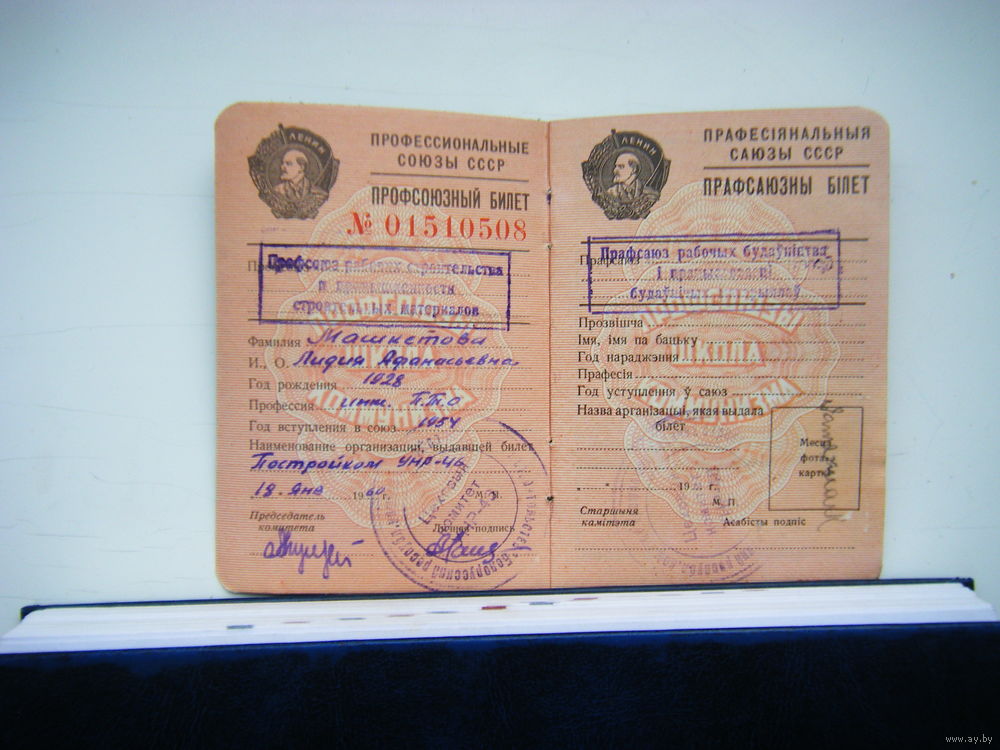 ЛЕНИН
ПРОФЕССИОНАЛЬНЫЕ
СОЮЗЫ СССР
ПРОФСОЮЗНЫЙ БИЛЕТ
№ 01510508
Профсоюз рабочих строительства
и промышленности
строительных материалов
Фамилия Машкетова
И., О. Лидия Афанасьевна
Год рождения 1928
Профессия инж. П.Т.О
Год вступления в союз 1954
Наименование организации, выдавшей билет
Постройком УНР-46
18 Янв 1960 г. М. П.
Председатель
комитета
Личная подпись
ЛЕНИН
ПРАФЕСІЯНАЛЬНЫЯ
САЮЗЫ СССР
ПРАФСАЮЗНЫ БІЛЕТ
Прафсаюз
Прафсаюз рабочых будаўніцтва
Прозвішча
Імя, імя па бацьку
Год нараджэння
Прафесія
Год уступлення ў саюз
Назва арганізацыі, якая выдала
білет
Месца
фота-
карткі
19 г.
М. П.
Старшыня
камітэта
Асабісты подпіс
www.ay.by